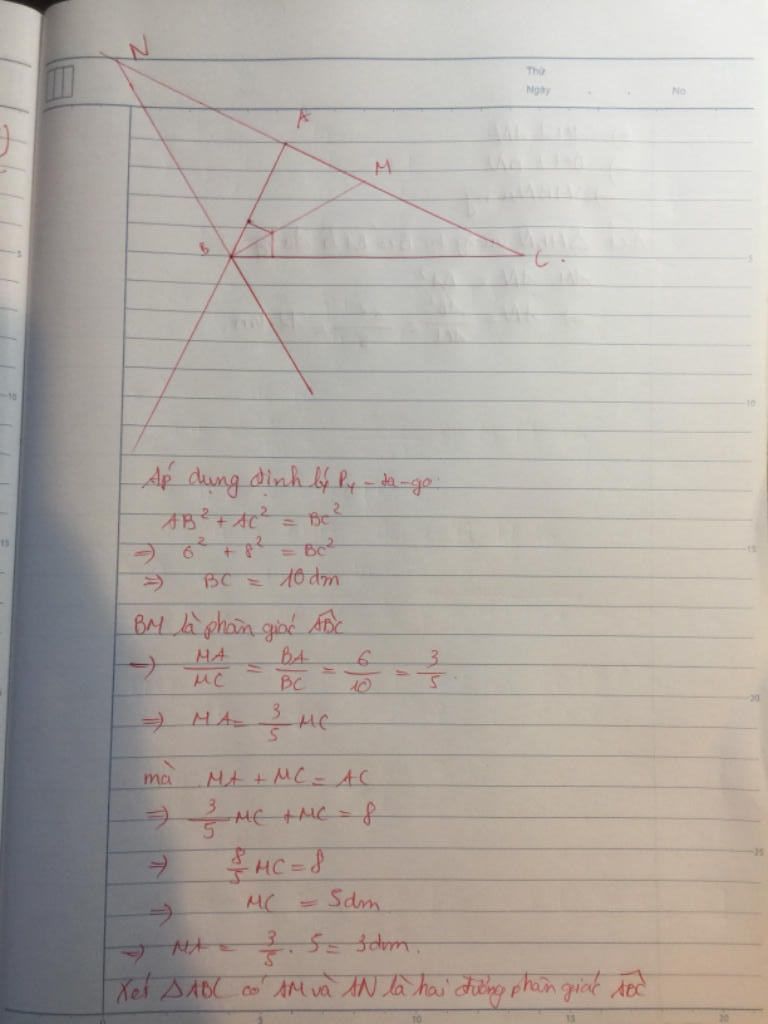 N
Thứ
Ngày . . No
A
M
B
C.
5
5
10
10
Áp dụng định lý Py-ta-go:
AB² + AC² = BC²
⇒ 6² + 8² = BC²
15
15
⇒ BC = 10dm
BM là phân giác ABC
⇒ MA/MC = BA/BC = 6/10 = 3/5.
20
20
⇒ MA = 3/5 MC
mà MA + MC = AC
⇒ 3/5 MC + MC = 8
25
⇒ 8/5 MC = 8
⇒ MC = 5dm
⇒ MA = 3/5 . 5 = 3dm.
Xét △ABC có AM và AN là hai đường phân giác ABC
0 5 10 15 20